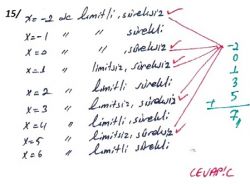 15/ x=-2 de limitli, süreksiz
x=-1 " " sürekli
x=0 " " , süreksiz
x=1 " limitsiz, süreksiz
x=2 " limitli sürekli
x=3 " limitsiz, süreksiz
x=4 " limitli, sürekli
x=5 " limitsiz, süreksiz
x=6 " limitli sürekli
-2
0
1
3
+ 5
7
CEVAP:C